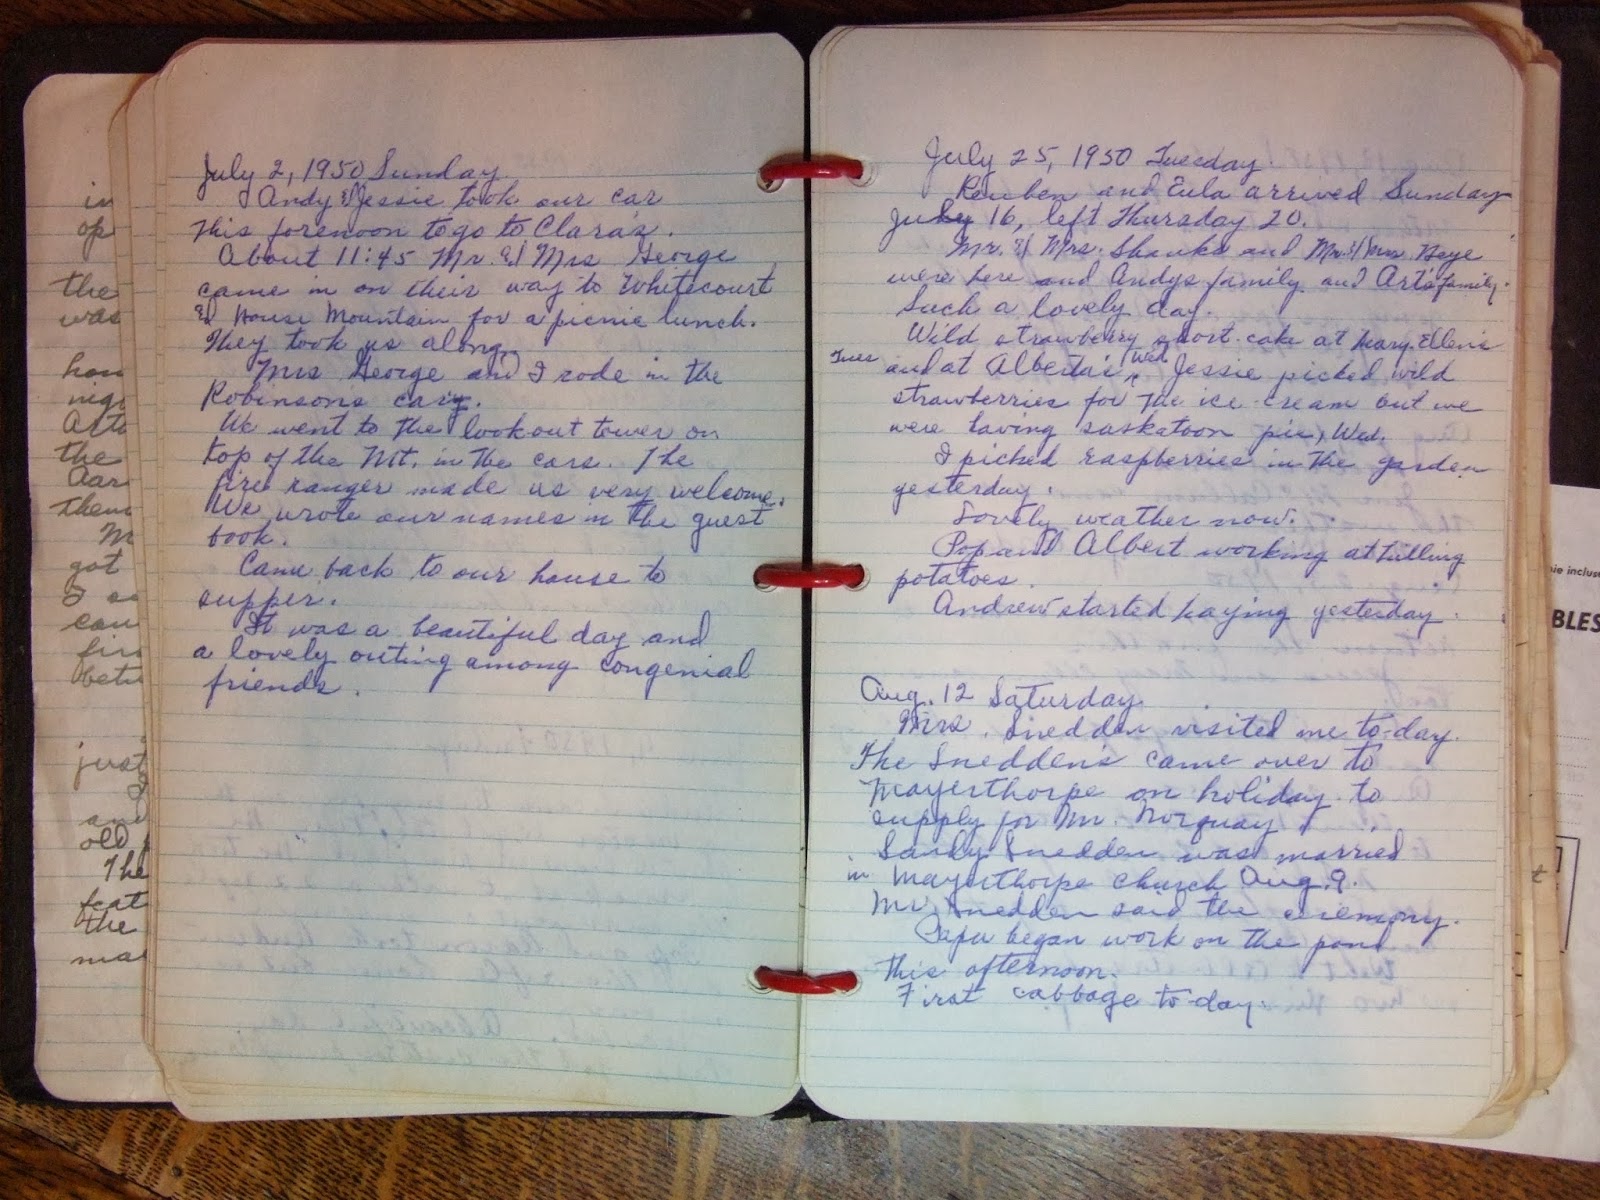 in
op
the
was
han
nig
Atto
the
Aar
them
M
got
I sa
can
fin
betw
just
and
old
The
feat
the
ma
July 2, 1950 Sunday.
Andy & Jessie took our car
this forenoon to go to Clara's.
About 11:45 Mr. & Mrs George
came in on their way to Whitecourt
& House Mountain for a picnic lunch.
They took us along.
Mrs George and I rode in the
Robinsons car.
We went to the lookout tower on
top of the Mt. in the cars. The
fire ranger made us very welcome.
We wrote our names in the guest
book.
Came back to our house to
supper.
It was a beautiful day and
a lovely outing among congenial
friends.
July 25, 1950 Tuesday.
Reuben and Eula arrived Sunday
July 16, left Thursday 20.
Mr. & Mrs. Shanks and Mr. & Mrs.
were here and Andys family and Art's family.
Such a lovely day.
Wild strawberry short-cake at Mary Ellen's
Tues and at Alberta's Wed. Jessie picked wild
strawberries for the ice cream but we
were having saskatoon pie, Wed.
I picked raspberries in the garden
yesterday.
Lovely weather now.
Pop and Albert working at hilling
potatoes.
Andrew started haying yesterday.
Aug. 12 Saturday.
Mrs. Snedden visited me to-day.
The Snedden's came over to
Mayerthorpe on holiday to
supply for Mr. Norquay.
Sandy Snedden was married
in Mayerthorpe church Aug. 9.
Mr. Snedden said the ceremony.
Papa began work on the pond
this afternoon.
First cabbage to-day.
ie inclus
BLES
t